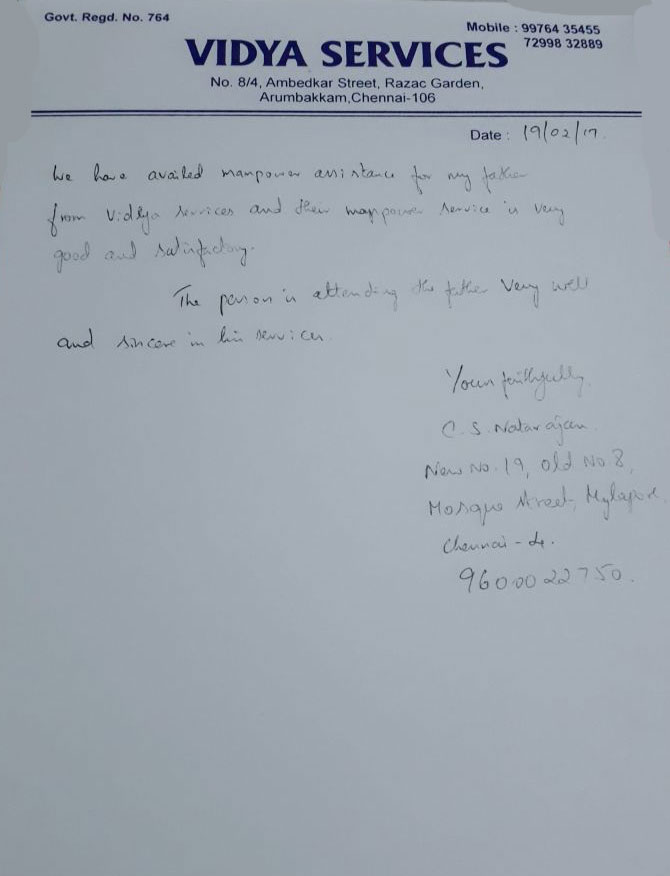 Govt. Regd. No. 764
Mobile : 99764 35455
72998 32889
VIDYA SERVICES
No. 8/4, Ambedkar Street, Razac Garden,
Arumbakkam,Chennai-106
Date : 19/02/17.
We have availed manpower assistance for my father
from Vidhya services and their manpower service is very
good and satisfactory.
The person is attending the father very well
and sincere in his services.
Yours faithfully,
C.S. Natarajan.
New No. 19, Old No. 8,
Mosque Street, Mylapore,
Chennai - 4.
9600022750.